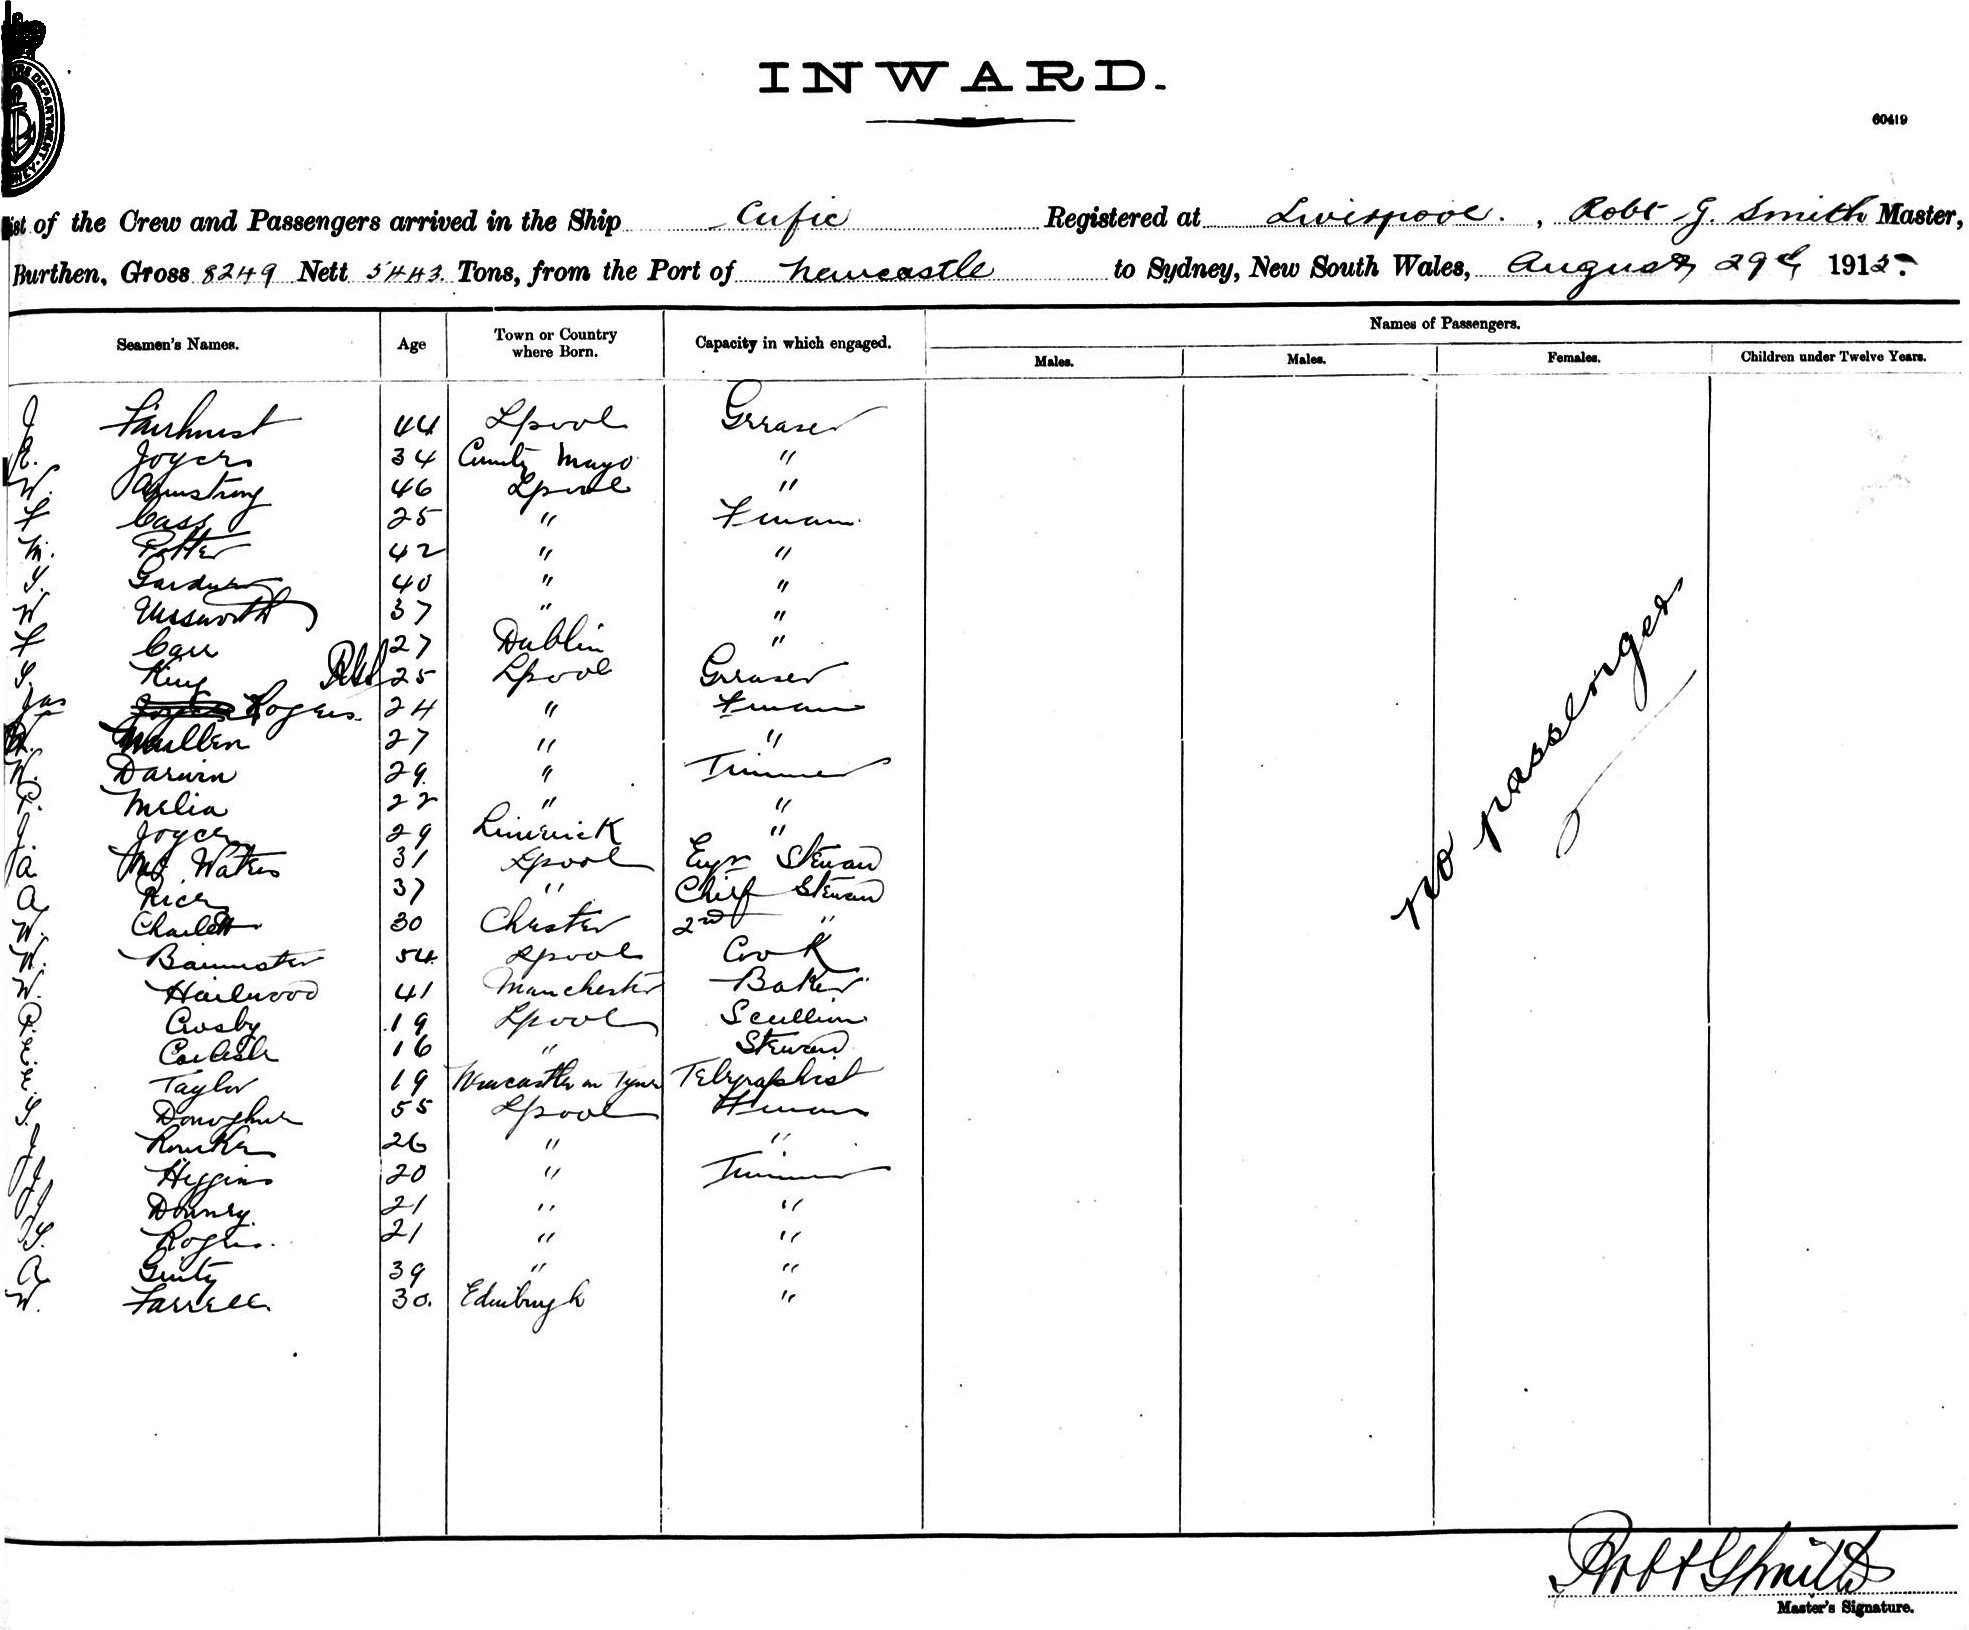 INWARD.
60419
List of the Crew and Passengers arrived in the Ship Cufic Registered at Liverpool. , Robt G. Smith Master,
Burthen, Gross 8249 Nett 5443 Tons, from the Port of Newcastle to Sydney, New South Wales, August 29th 1915.
Names of Passengers.
Seamen's Names. Age Town or Country where Born. Capacity in which engaged. Males. Males. Females. Children under Twelve Years.
J Fairhurst 44 Lpool Greaser
Joyce 34 County Mayo "
W. Armstrong 46 Lpool "
F Cass 25 " Fireman
M. Potter 42 " "
Gardner 40 " "
W Unsworth 37 " "
F Carr 27 Dublin "
King 25 Lpool Greaser
Jas Rogers. 24 " Fireman
Mullen 27 " "
W. Darwin 29 " Trimmer
P. Melia 22 " "
J. Joyce 29 Limerick "
a Waters 31 Lpool Engr Steward
A Rice 37 " Chief Steward
W. Charlett 30 Chester 2nd "
W. Bannister 54 Lpool Cook
W. Hailwood 41 Manchester Baker
Crosby 19 Lpool Scullion
Carlisle 16 " Steward
Taylor 19 Newcastle on Tyne Telegraphist
Donoghue 55 Lpool Fireman
J Rourke 26 " "
J Higgins 20 " Trimmer
J Downey. 21 " "
Rogers. 21 " "
A Ginty 39 " "
W. Farrell 30. Edinburgh "
no passengers
Robt G Smith
Master's Signature.